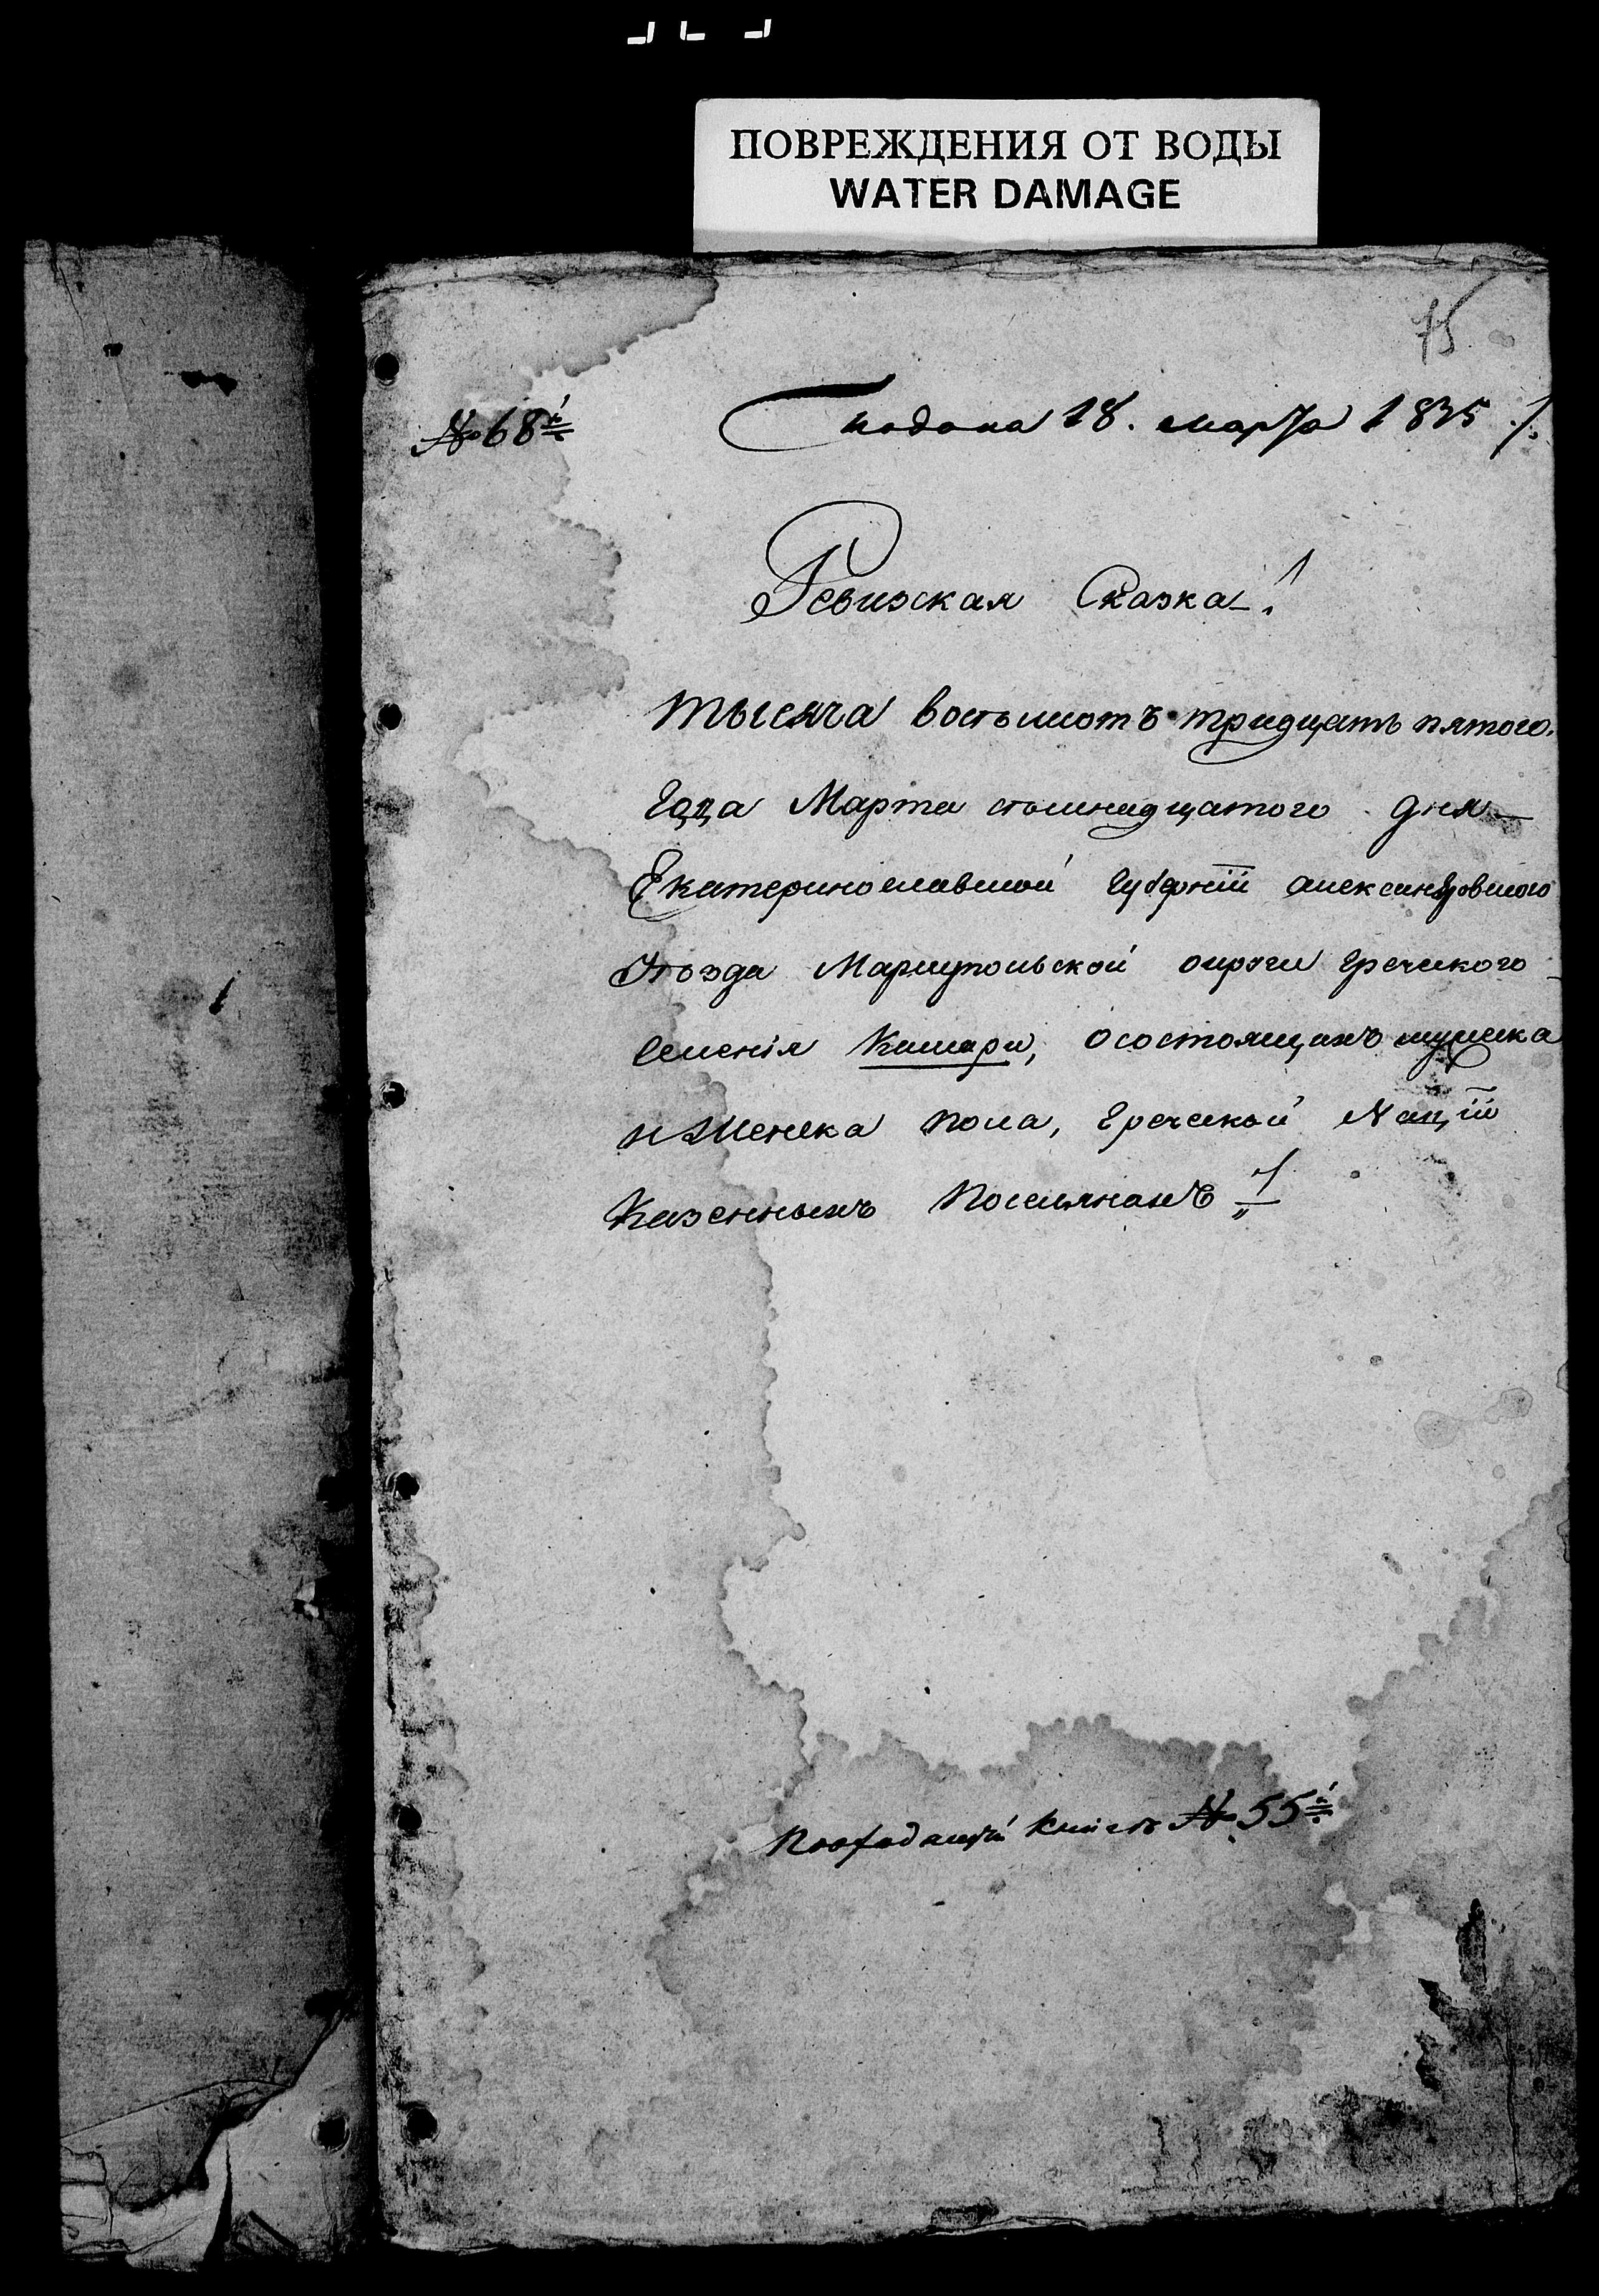 ПОВРЕЖДЕНИЯ ОТ ВОДЫ
WATER DAMAGE
75
№ 68й
Подана 18. марта 1835
Ревизская Сказка
тысяча восьмсотъ тридцать пятого
года Марта осьмнадцатого дня
Екатеринославской губернiи александровского
Уъзда Мариупольской округи греческого
селенiя Камари, о состоящихъ мужеска
и женска пола, греческой Нацiи
Казенныхъ поселянахъ
книгъ № 55й